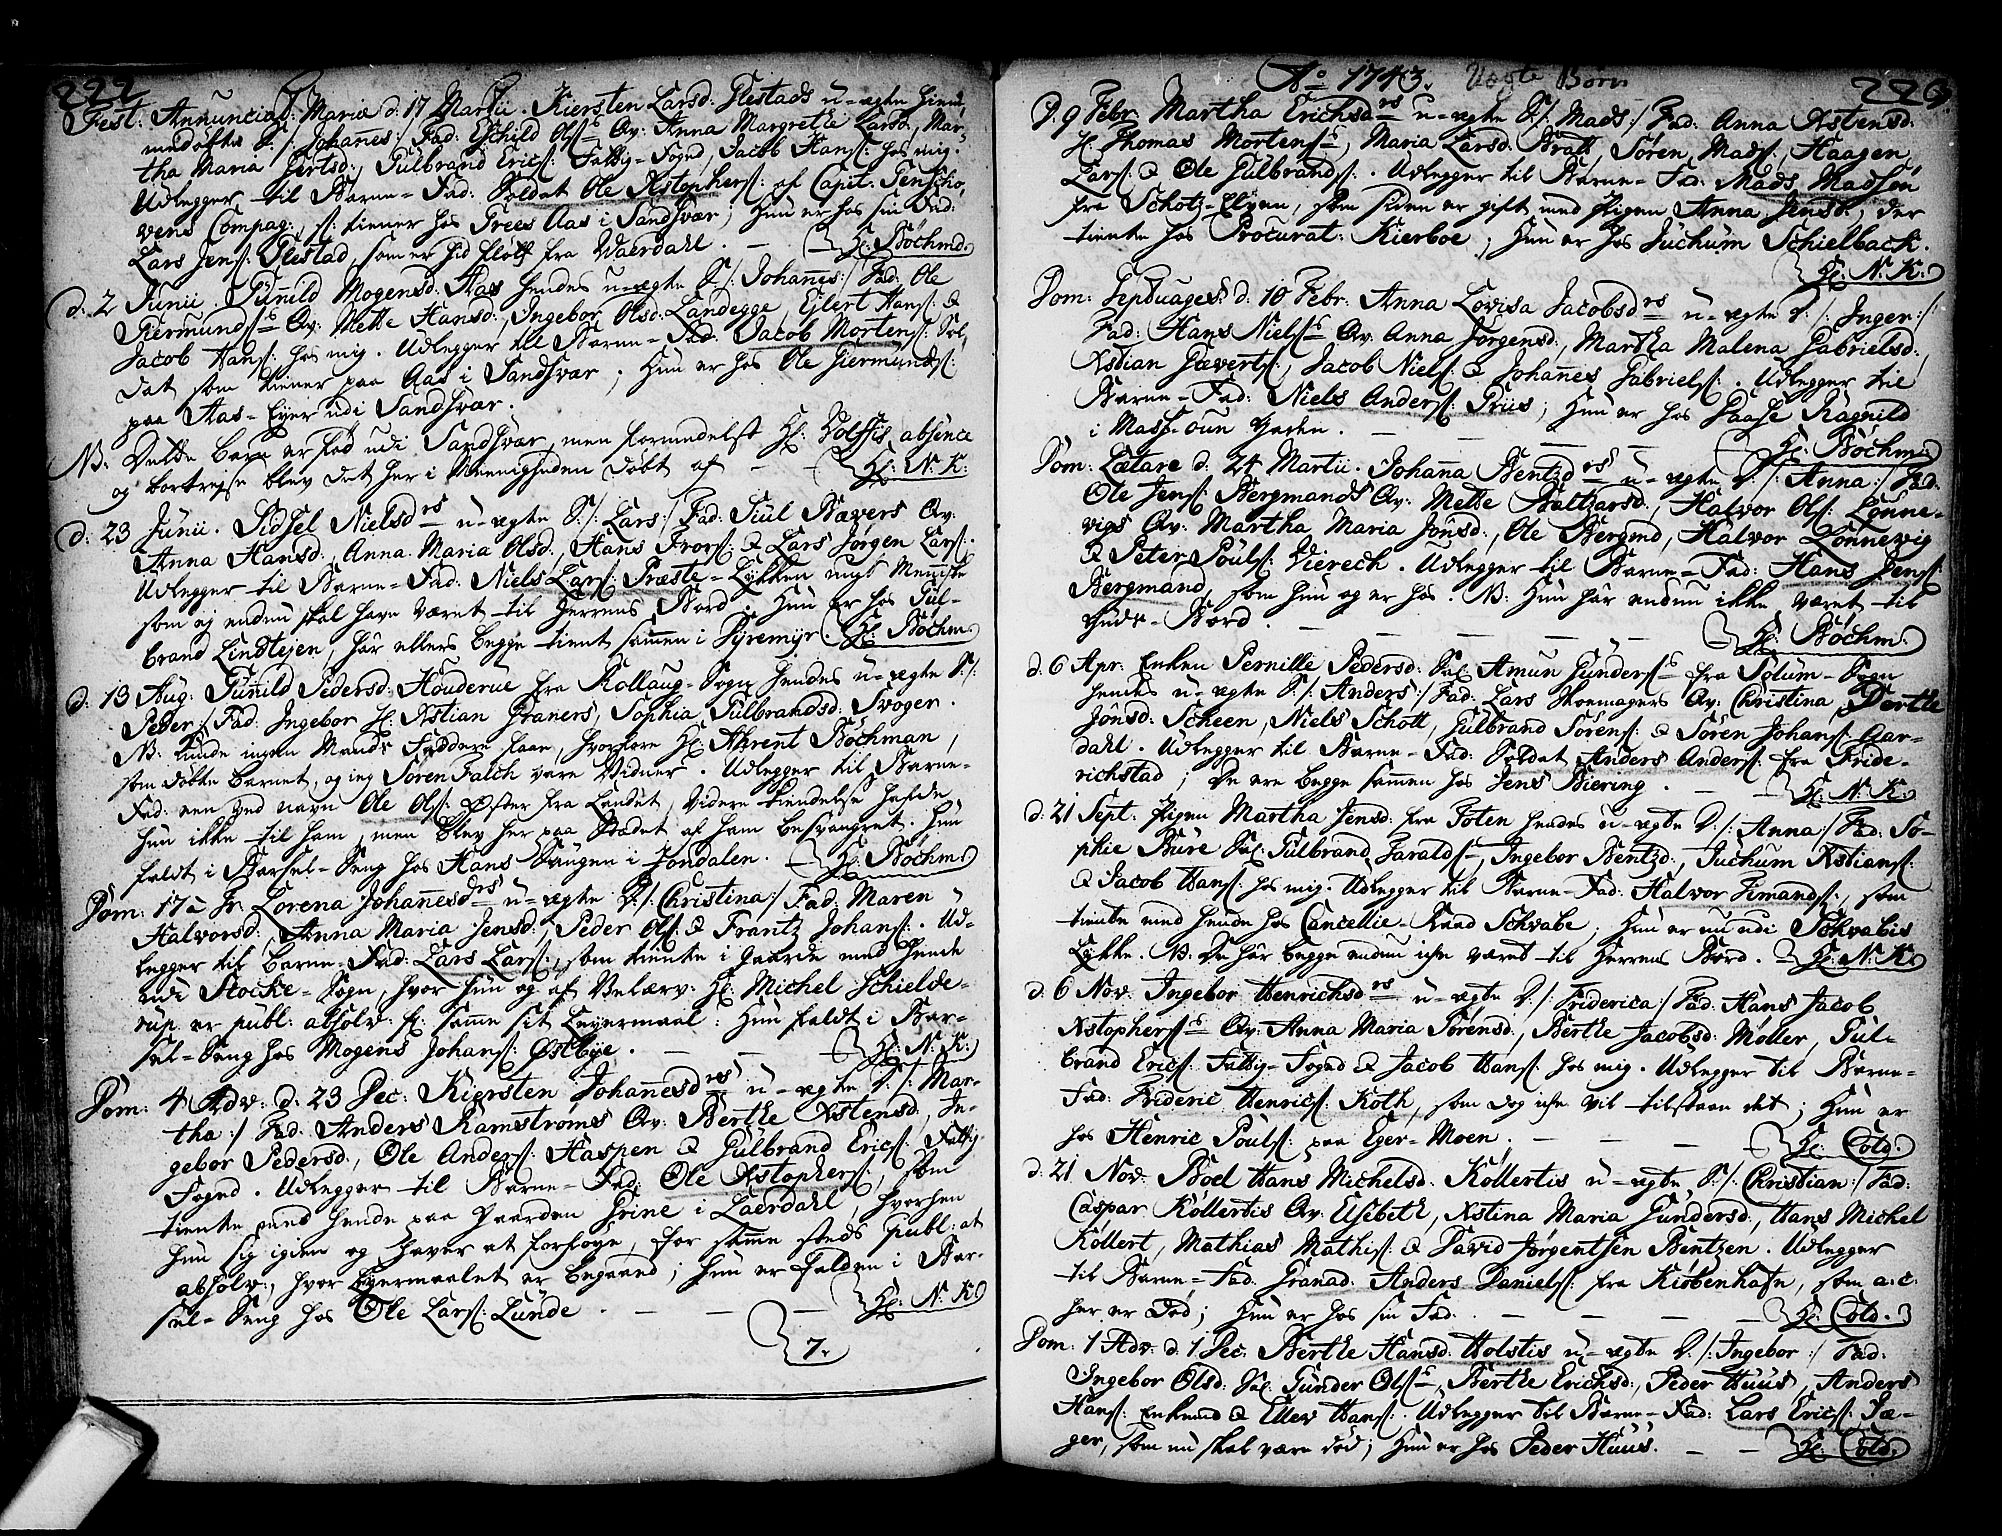 222
Fest: Annunciat: Mariæ d: 17 Martii. Kiersten Larsd: Plestads u-ægte hiem,
medøfte S: /: Johannes :/ Fad: Eschild Ols: Qv: Anna Margretha Larsd, Mar-
tha Maria Gertsd:, Gulbrand Erics: Fattig-Fogd, Jacob Hans: hos mig.
Udlegger til Barne-Fad: Soldat Ole Xstophers: af Capit: Tensko,
vens Compag:, s: tiener hos Trees Aas i Sandsvær; Hun er hos sin Fad:
Lars Jens: Plestad, som er hid fløtt fra Waerdahl. — Hr: Bøchm:
d: 2 Junii. Gunnild Mogensd: Aas hendes u-ægte S: /: Johannes :/ Fad: Ole
Giermunds: Qv: Mette Hansd:, Ingebor Olsd: Landegge, Eilert Hans: &
Jacob Hans: hos mig. Udlegger til Barne-Fad: Jacob Mortens: Sol,
dat som tiener paa Aas i Sandsvær; Hun er hos Ole Giermunds:
paa Aas-Eyer udi Sandsvær.
NB: Dette barn er fød udi Sandsvær, men formedelst Hr: Wolffs absence
og bortrejse blev det her i Menigheden døbt af — — Hr: N: K:
d: 23 Junii. Sidsel Nielsdrs u-ægte S: /: Lars :/ Fad: Siul Bævers Qv:
Anna Hansd:, Anna Maria Olsd:, Hans Ivers: & Lars Jørgen Lars:.
Udlegger til Barne-Fad: Niels Lars: Præste-Løkken ungt Menniske
som ej endnu skal have været til Herrens Bord. Hun er hos Gul-
brand Lindtejen, har ellers begge tient sammen i Pyremyr. Hr: Bøchm:
d: 13 Aug: Gunild Pedersd: Houderue fra Rollaug-Sogn hendes u-ægte S: /:
Peder :/ Fad: Ingebor Hr: Xstian Graners, Sophia Gulbrandsd: Svoger.
NB: kunde ingen Mands Faddere faae, hvorfore Hr: Ahrent Bøchman,
som døbte barnet, og ieg Søren Falch vare Vidner. Udlegger til Barne-
Fad: een ved navn Ole Ols: Øster fra Landet, Videre kiendelse hafde
hun ikke til ham, men blev her paa Stædet af ham besvangret. Hun
faldt i Barsel-Seng hos Hans Saugen i Jondalen. — Hr: Bøchm:
Dom: 17 à Tr. Lorena Johannesdrs u-ægte D: /: Christina :/ Fad: Maren
Halvorsd:, Anna Maria Jensd:, Peder Ols: & Frantz Johans:. Ud-
legger til barne-Fad: Lars Lars:, som tiente i Gaarde med hende
udi Stocke-Sogn, hvor hun og af Velærv: Hr: Michel Schielde-
rup er publ: absolv: f: samme sit Leyermaal. Hun faldt i Bar-
sel-Seng hos Mogens Johans: Østbye. — — Hr: N: K:
Dom: 4 Adv: d: 23 Dec: Kiersten Johannesdrs u-ægte D: /: Mar-
tha :/ Fad: Anders Ramstrøms Qv: Berthe Xstensd:, In-
gebor Pedersd:, Ole Anders: Haspen & Gulbrand Erics: Fattig-
Fogd. Udlegger til Barne-Fad: Ole Xstophers:, som
tiente med hende paa Gaarden Grine i Laerdahl, hvorhen
hun sig igien og haver at forføye, for samme steds publ: at
absolv:, hvor Leyermaalet er begaaed; Hun er falden i Bar-
sel-Seng hos Ole Lars: Lunde. — — Hr: N: K:
7.
Ao 1743. Uægte Børn 223
D. 9 Febr: Martha Erichsdrs u-ægte S: /: Mads :/ Fad: Anna Xstensd:
Hr: Thomas Mortens:, Maria Larsd: Bratt, Søren Mads:, Haagen
Lars: & Ole Gulbrands:. Udlegger til Barne-Fad: Mads Madsen
fra Schotz-Elven, som siden er gift med Pigen Anna Jensd:, der
tiente hos Procurat: Kierboe; Hun er hos Juchum Schielback.
Hr: N: K:
Dom: Septuages: d: 10 Febr: Anna Lovisa Jacobsdrs u-ægte D: /: Inger :/
Fad: Hans Niels: Qv: Anna Jørgensd:, Martha Malena Gabrielsd:,
Xstian Gæverts:, Jacob Niels: & Johannes Gabriels:. Udlegger til
Barne-Fad: Niels Anders: Priis; Hun er hos Paase Ragnild
i Mass-oun Gaden. — — —
Hr: Bøchm:
Dom: Lætare d: 24 Martii. Johanna Bentzdrs u-ægte D: /: Anna :/ Fad:
Ole Jens: Bergmands Qv: Mette Baltzarsd:, Halvor Ols: Lønne-
vigs Qv: Martha Maria Jonsd:, Ole Bergmd, Halvor Lønnevig
& Peter Pouls: Vierech. Udlegger til Barne-Fad: Hans Jens:
Bergmand, som hun og er hos. NB: Hun har endnu ikke været til
Guds-Bord. — — — — Hr: Bøchm:
d: 6 Apr: Enken Pernille Pedersd: Sal: Amun Gunders: fra Solum-Sogn
hendes u-ægte S: /: Anders :/ Fad: Lars Skomagers Qv: Christina, Dorthe
Jonsd: Scheen, Niels Schott, Gulbrand Sørens: & Søren Johans: Aar-
dahl. Udlegger til Barne-Fad: Soldat Anders Anders: fra Fride-
richstad; De ere begge sammen hos Jens Biering. — — Hr: N: K:
d: 21 Sept: Pigen Martha Jensd: fra Toten hendes u-ægte D: /: Anna :/ Fad: So-
phie Bure Sal: Gulbrand Haralds:, Ingebor Bentzd:, Juchum Xstians:
& Jacob Hans: hos mig. Udlegger til Barne-Fad: Halvor Simands:, som
tiente med hende hos Cancellie-Raad Schwabe; Hun er nu udi Schvabis
Løkke. NB: De har begge endnu iche været til Herrens Bord. Hr: N: K:
d: 6 Nov: Ingebor Henrichsdrs u-ægte D: /: Friderica :/ Fad: Hans Jacob
Xstophers: Qv: Anna Maria Sørensd:, Berthe Jacobsd: Møller, Gul-
brand Erics: Fattig-Fogd & Jacob Hans: hos mig. Udlegger til Barne-
Fad: Frideric Henrics: Koth, som dog iche vil tilstaae det; Hun er
hos Henric Pouls: paa Eger-Moen. — — Hr: Cold:
d: 21 Nov: Boel Hans Michelsd: Køllertis u-ægte S: /: Christian :/ Fad:
Caspar Køllertis Qv: Elsebeth, Xstina Maria Gundersd:, Hans Michel
Køllert, Mathias Mathis: & David Jørgentsen Bentzen. Udlegger
til Barne-Fad: Granad: Anders Daniels: fra Kiøbenhafn, som a: c:
her er død; Hun er hos sin Fad: — — — Hr: Cold:
Dom: 1 Adv: d: 1 Dec: Berthe Hansd: Holstis u-ægte D: /: Ingebor :/ Fad:
Ingebor Olsd: Sal: Gunder Ols:, Berthe Erichsd:, Peder Huus, Anders
Hans: Enkemd & Ellev Hans:. Udlegger til Barne-Fad: Lars Erics: Jæ-
ger, som nu skal være død; Hun er hos Peder Huus. — — Hr: Cold: